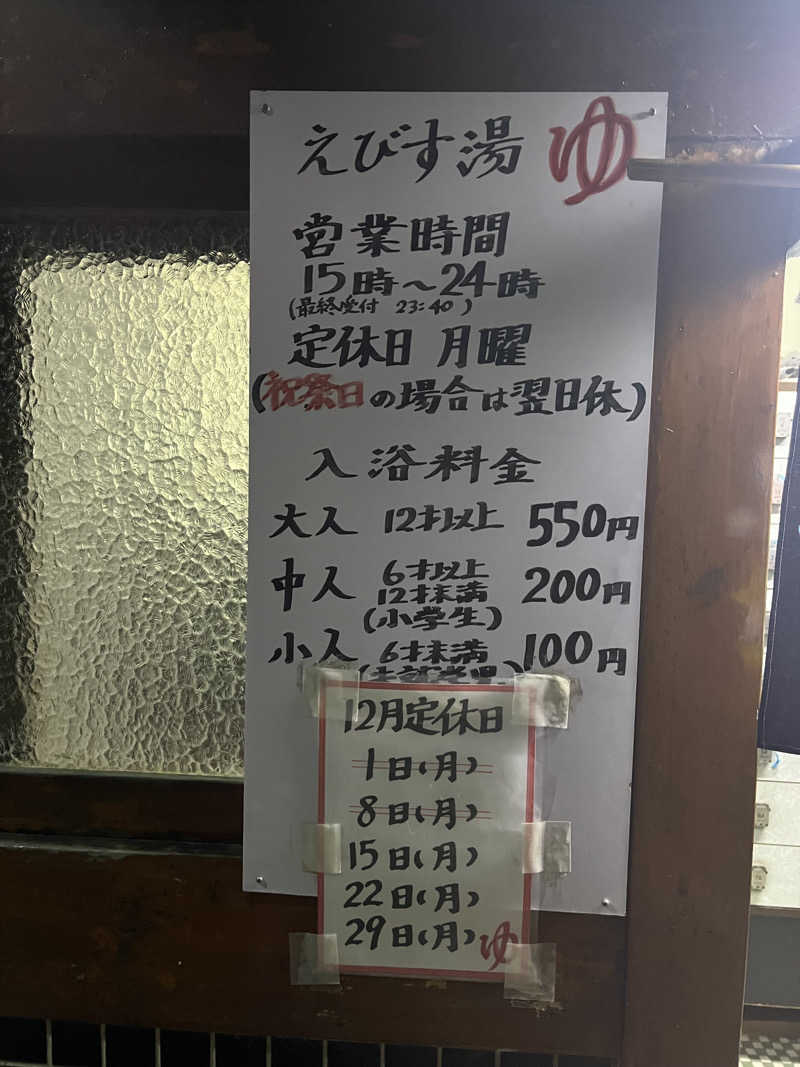 えびす湯 ゆ
営業時間
15時～24時
(最終受付 23:40)
定休日 月曜
(祝祭日の場合は翌日休)
入浴料金
大人 12才以上 550円
中人 6才以上 200円
12才未満
(小学生)
小人 6才未満 100円
12月定休日
1日(月)
8日(月)
15日(月)
22日(月)
29日(月)
ゆ